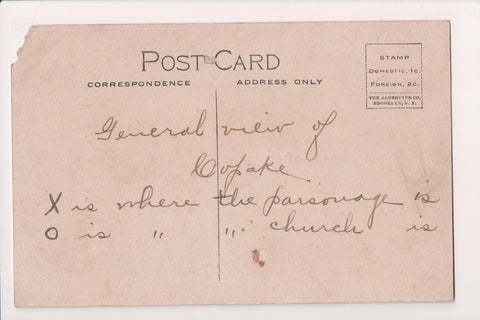 POST CARD
CORRESPONDENCE ADDRESS ONLY
STAMP
DOMESTIC, 1C.
FOREIGN, 2C.
THE ALBERTYPE CO.
BROOKLYN, N. Y.
General view of
Copake
X is where the parsonage is
O is " " church is